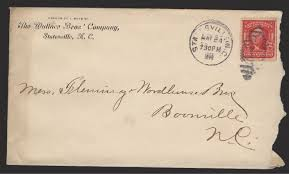 The Wallace Bros. Company,
Statesville, N.C.
7 30 PM
Mess. Fleming & Woodhouse Bros
Boonville
N.C.